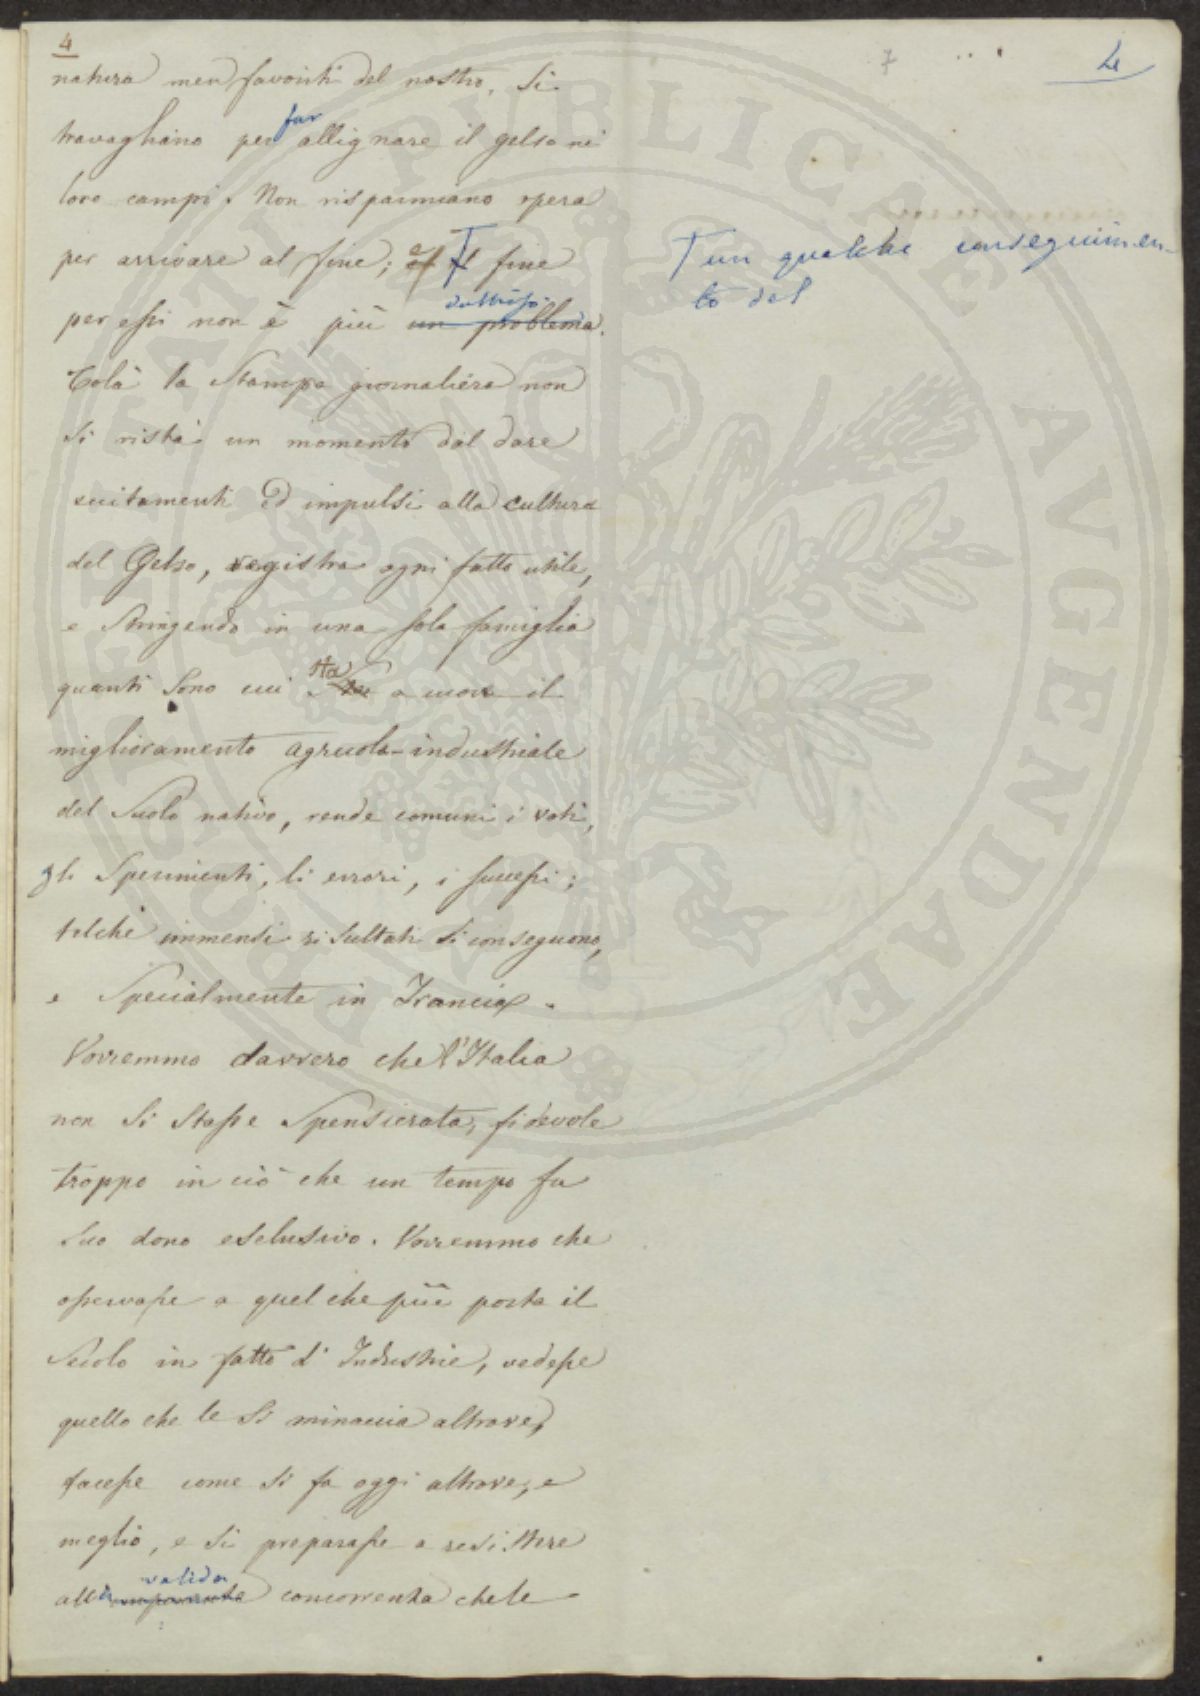 4
7
4
natura men favoriti del nostro, si
travagliano per far allignare il gelso nei
loro campi. Non risparmiano opera
per arrivare al fine; ed T il fine
T un qualche conseguimen-
to del
per essi non è più un problema. dubbioso.
Colà la Stampa giornaliera non
si ristà un momento dal dare
eccitamenti ed impulsi alla cultura
del Gelso, registra ogni fatto utile,
e stringendo in una sola famiglia
quanti sono cui sta a cuore il
miglioramento agricola-industriale
del Suolo nativo, rende comuni i voti,
gli Sperimenti, li errori, i successi;
talchè immensi risultati si conseguono,
e Specialmente in Francia.
Vorremmo davvero che l'Italia
non si stasse Spensierata, fidevole
troppo in ciò che un tempo fu
suo dono esclusivo. Vorremmo che
osservasse a quel che più porta il
Secolo in fatto d'Industrie, vedesse
quello che le si minaccia altrove,
facesse come si fa oggi altrove, e
meglio, e si preparasse a resistere
alla valida concorrenza che le
PUBLICAE AVGENDAE PROSPERITATI